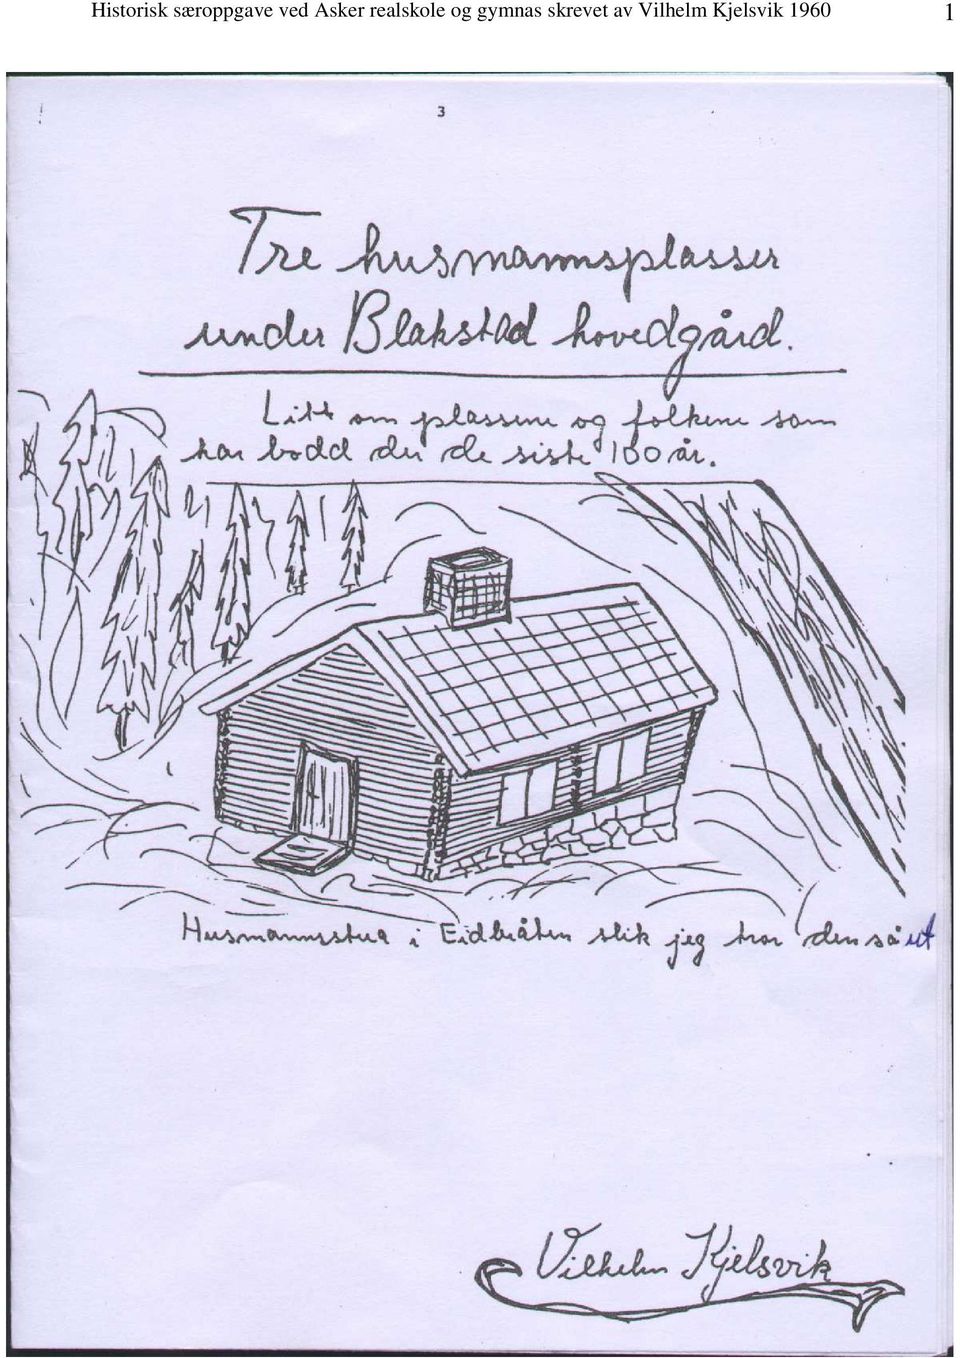 Historisk særoppgave ved Asker realskole og gymnas skrevet av Vilhelm Kjelsvik 1960 1
3
Tre husmannsplasser
under Blakstad hovedgård.
Litt om plassene og folkene som
har bodd der de siste 100 år.
Husmannsstua i Eidbråten slik jeg tror den så ut
Vilhelm Kjelsvik